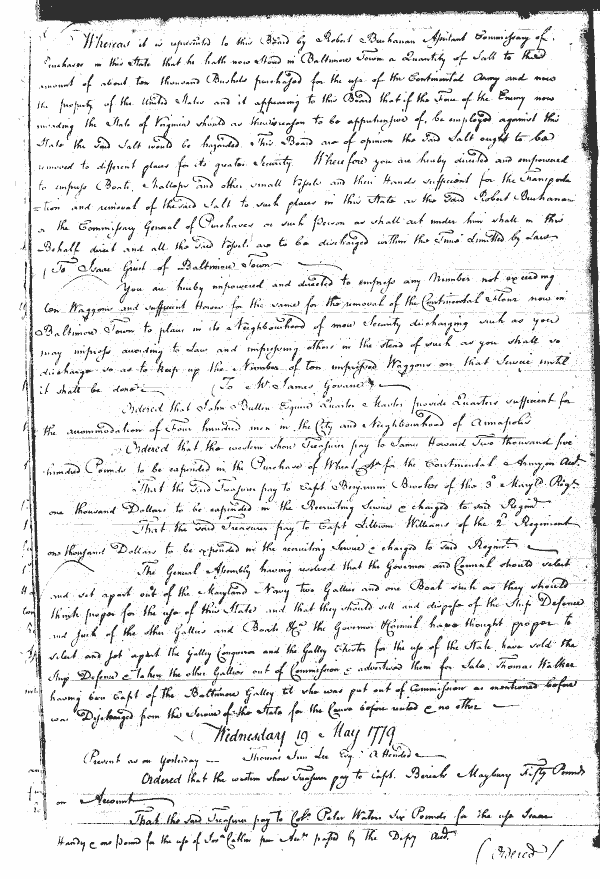 Whereas it is represented to this Board by Robert Buchanan Assistant Commissary of
Purchases in this State that he hath now Stored in Baltimore Town a Quantity of Salt to the
amount of about ten thousand Bushels purchased for the use of the Continental Army and now
the property of the United States and it appearing to this Board that if the Force of the Enemy now
invading the State of Virginia should as there is reason to be apprehensive of, be employed against this
State the said Salt would be hazarded. This Board are of opinion the said Salt ought to be
removed to different places for its greater Security. Wherefore you are hereby directed and empowered
to impress Boats, Shallops and other small Vessels and their Hands sufficient for the Transporta
-tion and removal of the said Salt to such places in this State as the said Robert Buchanan
or the Commissary General of Purchases or such Person as shall act under him shall in this
Behalf direct and all the said Vessels are to be discharged within the Time Limitted by Law
(To Isaac Griest of Baltimore Town
You are hereby impowered and directed to impress any Number not exceeding
ten Waggons and sufficient Horses for the same for the removal of the Continental Flour now in
Baltimore Town to places in its Neighbourhood of more Security discharging such as you
may impress according to Law and impressing others in the stead of such as you shall so
discharge so as to keep up the Number of ten impressed Waggons on that Service until
it shall be done (To Mr James Govane
Ordered that John Bullen Esquire Quarter Master provide Quarters sufficient for
the accommodation of Four hundred men in the City and Neighbourhood of Annapolis
Ordered that the western shore Treasurer pay to Samuel Howard Two thousand five
hundred Pounds to be expended in the Purchase of Wheat &ca for the Continental Army on Acct.
That the said Treasurer pay to Capt Benjamin Brookes of the 3d Maryld Regt
one thousand Dollars to be expended in the Recruiting Service & charged to said Regimt
That the said Treasurer pay to Capt Lilburn Williams of the 2d Regiment
one thousand Dollars to be expended in the recruiting Service & charged to said Regimt
The General Assembly having resolved that the Governor and Council should select
and set apart out of the Maryland Navy two Gallies and one Boat such as they should
think proper for the use of this State and that they should sell and dispose of the Ship Defence
and such of the other Gallies and Boats &ca the Governor & Council have thought proper to
select and set apart the Galley Conqueror and the Galley Chester for the use of the State have sold the
Ship Defence & taken the other Gallies out of Commission & advertised them for Sale. Thomas Walker
having been Capt of the Baltimore Galley til she was put out of Commission as mentioned before
was Discharged from the Service of the State for the Cause before recited & no other
Wednesday 19 May 1779
Present as on Yesterday Thomas Sim Lee Esqr Attended
Ordered that the western shore Treasurer pay to Capt. Beriah Maybury Fifty Pounds
on Account
That the said Treasurer pay to Colo Peter Waters Six Pounds for the use Isaac
Handy & one pound for the use of per Acct passed by the Depy Aud.
(Ordered)